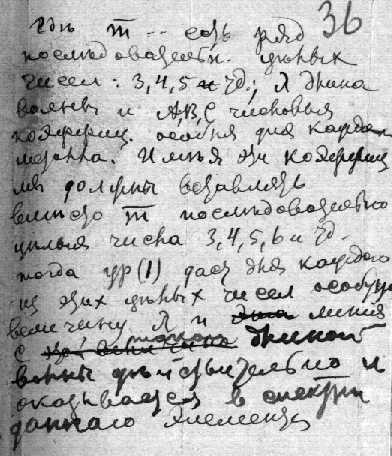 36
Гдѣ m -- есть рядъ
послѣдовательн. цѣлых
чисел: 3,4,5 и т.д.; λ длина
волны и A,B,C числовыя
коэффиц. особыя для каждаго
металла. Имѣя эти коэффиц
мы должны вставлять
вместо m послѣдовательно
цѣлыя числа 3,4,5,6 и т.д.
тогда ур(1) даст для каждаго
из этих цѣлых чисел особую
величину λ и линия
с длиной
волны дѣйствительно и
оказывается в спектрѣ
даннаго элемента